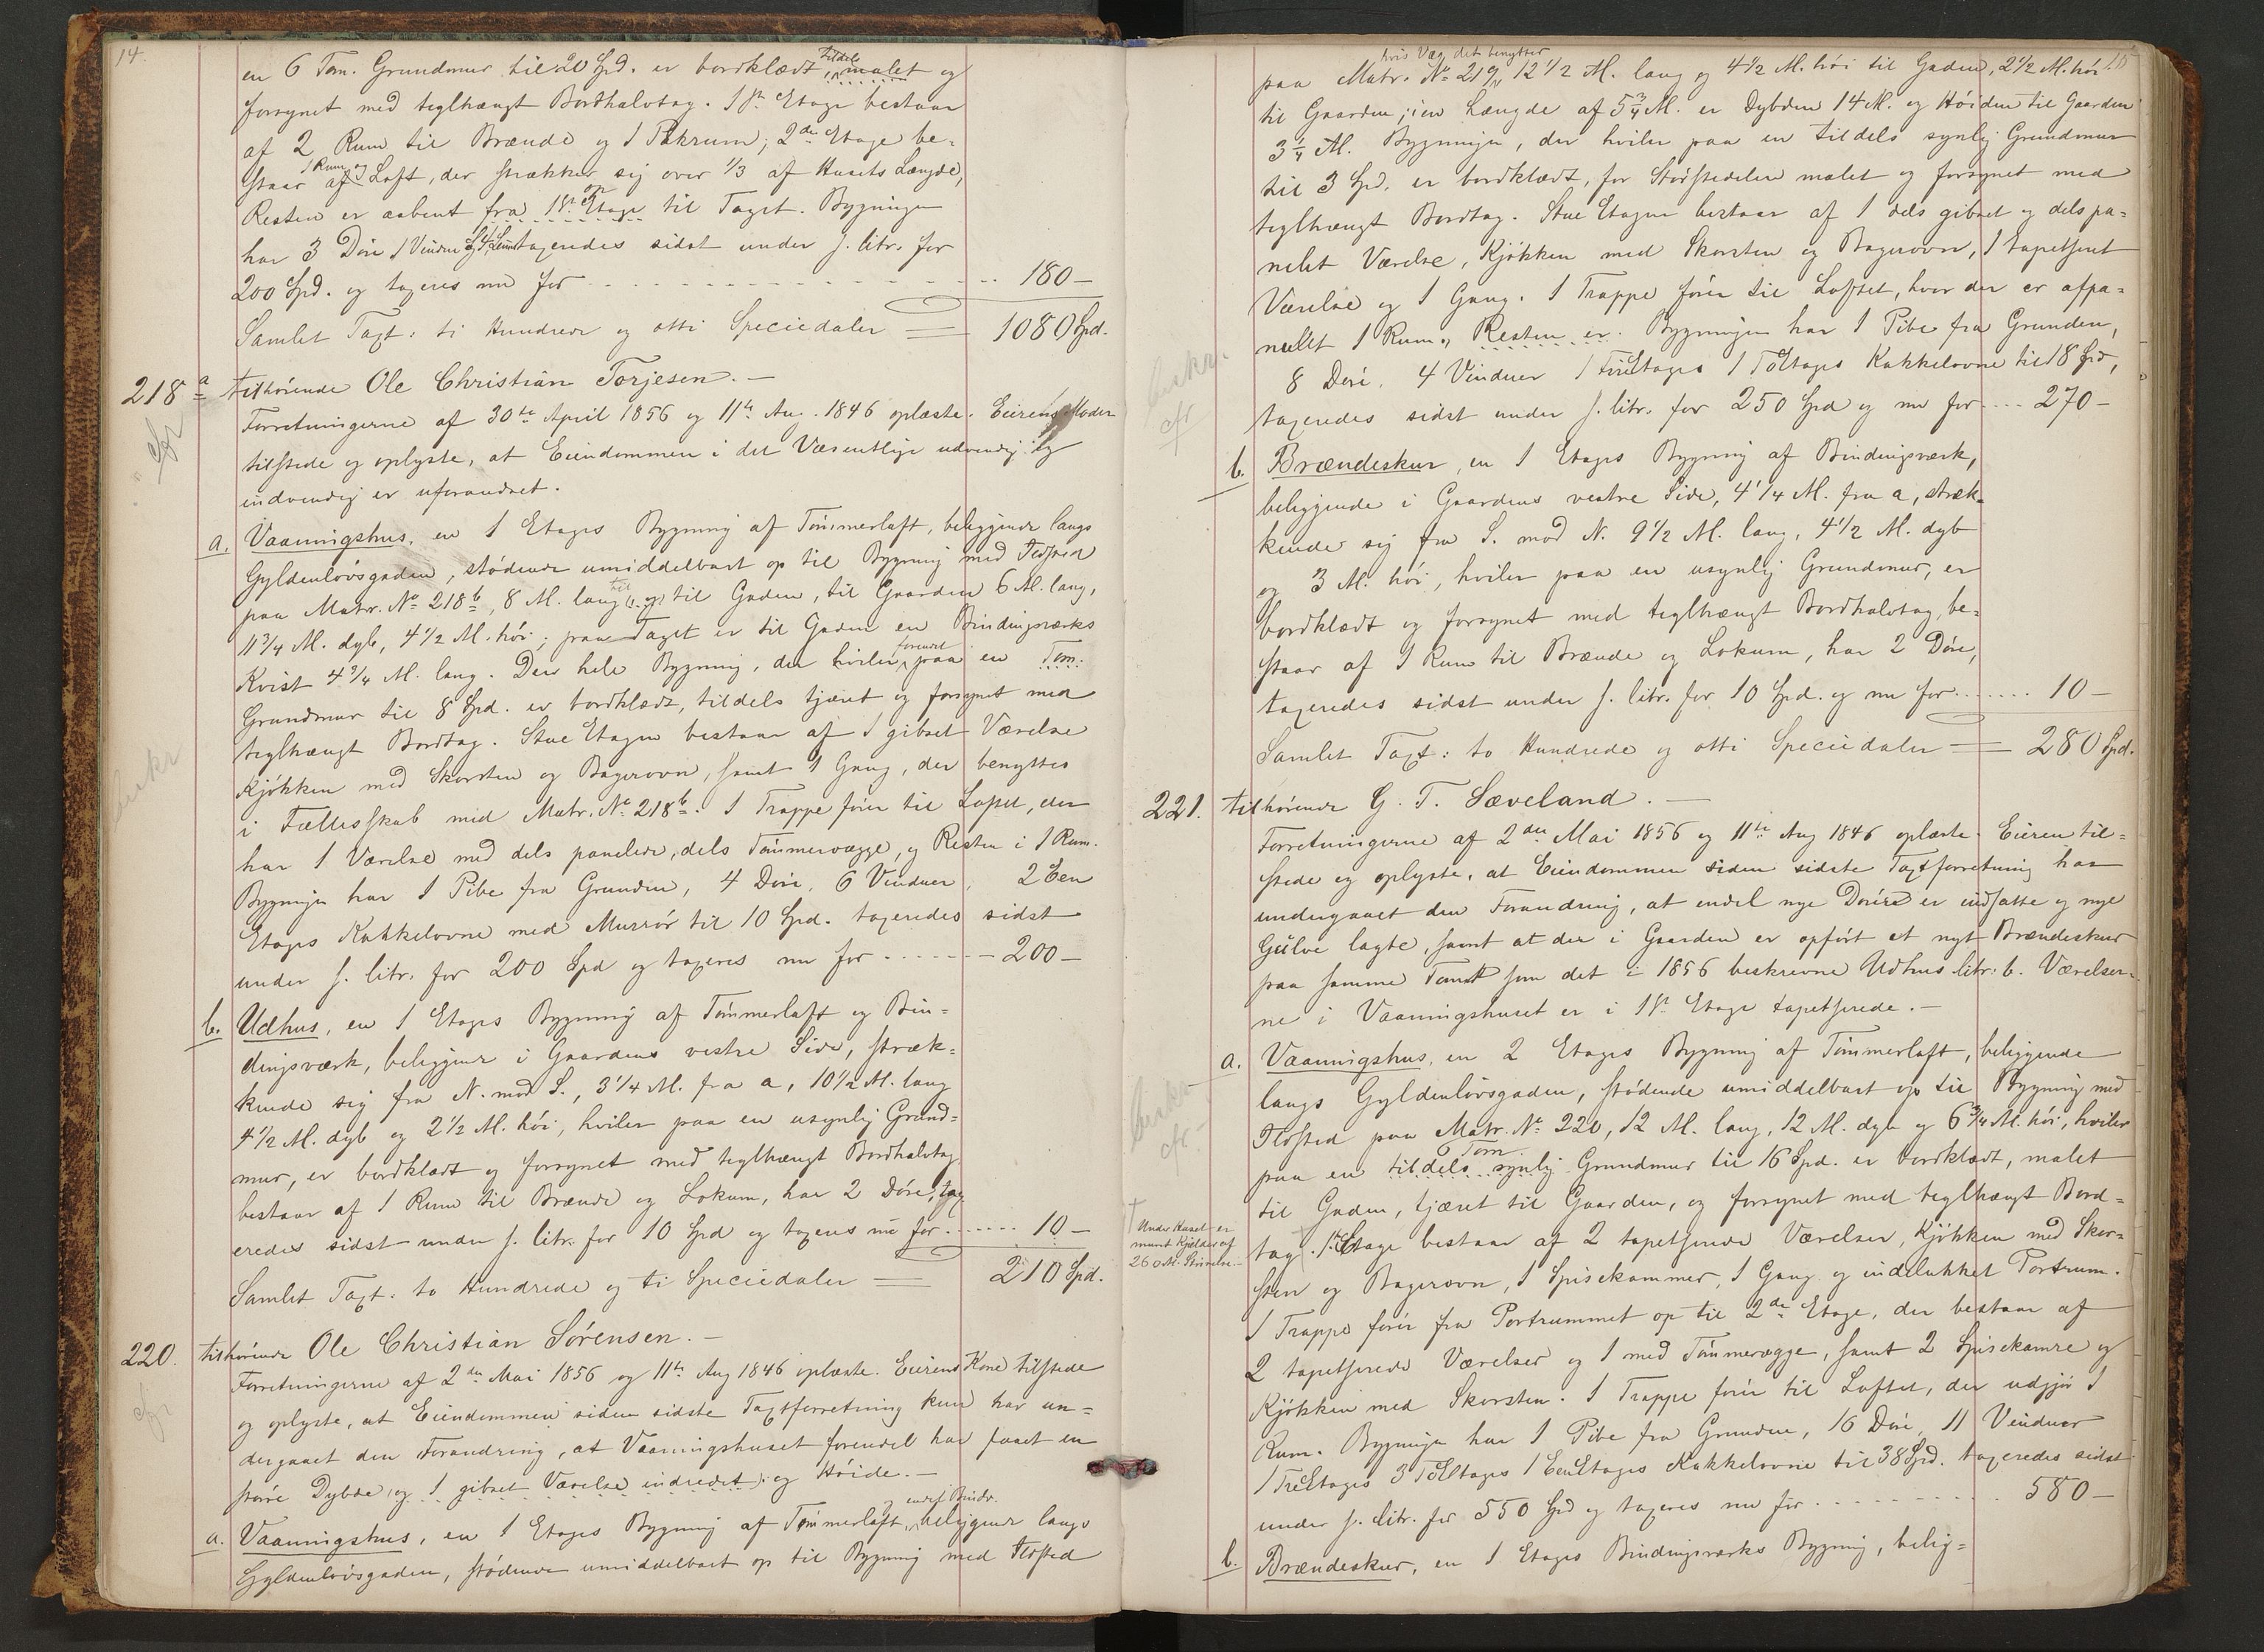 14.
en 6 Tom. Grundmur til 20 Spd. er bordklædt, tildels malet og
forsynet med teglhængt Bordhalvtag. 1ste Etage bestaar
af 2 Rum til Brænde og 1 Pakrum; 2den Etage be-
staar af 1 Rum og Loft, der strækker sig over 1/3 af Husets Længde,
Resten er aabent fra 1ste Etage op til Taget. Bygningen
har 3 Döre 1 Vindue og taxeredes sidst under s. litr. for
200 Spd. og taxeres nu for 180 –
Samlet Taxt: ti Hundrede og otti Speciedaler = 1080 Spd.
218a tilhörende Ole Christian Torjesen. –
cfr
Forretningerne af 30te April 1856 og 11te Aug. 1846 oplæste. Eierens Moder
tilstede og oplyste, at Eiendommen i det Væsentlige udvendig og
indvendig er uforandret.
a. Vaaningshus, en 1 Etages Bygning af Tömmerlaft, beliggende langs
Gyldenlövsgaden, stödende umiddelbart op til Bygning med Ildsted
paa Matr. No 218b, 8 M. lang til Gaden, til Gaarden 6 M. lang,
11 3/4 M. dyb, 4 1/2 M. höi; paa Taget er til Gaden en Bindingsværks
Kvist 4 3/4 M. lang. Den hele Bygning, der hviler paa en Tom.
Grundmur til 8 Spd. er bordklædt, tildels tjæret og forsynet med
teglhængt Bordtag. Stue Etagen bestaar af 1 gibset Værelse
Kjökken med Skorsten og Bagerovn, samt 1 Gang, der benyttes
i Fællesskab med Matr. No 218b. 1 Trappe förer til Loftet, der
har 1 Værelse med dels panelede, dels Tömmervægge, og Resten i 1 Rum.
Bygningen har 1 Pibe fra Grunden, 4 Döre, 6 Vinduer, 2 Een
Etages Kakkelovne med Murrör til 10 Spd. taxeredes sidst
under s. litr. for 200 Spd og taxeres nu for 200 –
b. Udhus, en 1 Etages Bygning af Tömmerlaft og Bin-
dingsværk, beliggende i Gaardens vestre Side, stræk-
kende sig fra N. mod S., 3 1/4 M. fra a, 10 1/2 M. lang
4 1/2 M. dyb og 2 1/2 M. höi, hviler paa en usynlig Grund-
mur, er bordklædt og forsynet med teglhængt Bordhalvtag
bestaar af 1 Rum til Brænde og Lokum, har 2 Döre, tax
eredes sidst under s. litr. for 10 Spd og taxeres nu for 10 –
Samlet Taxt: to Hundrede og ti Speciedaler = 210 Spd.
220. tilhörende Ole Christian Sörensen. –
cfr
Forretningerne af 2den Mai 1856 og 11te Aug 1846 oplæste. Eierens Kone tilstede
og oplyste, at Eiendommen siden sidste Taxtforretning kun har un-
dergaaet den Forandring, at Vaaningshuset forendel har faaet en
större Dybde, og 1 gibset Værelse indredet, og Höide. –
a. Vaaningshus, en 1 Etages Bygning af Tömmerlaft, og endel Bindv. beliggende langs
Gyldenlövsgaden, stödende umiddelbart op til Bygning med Ildsted
15
paa Matr. No 219, hvis Væg det benytter 12 1/2 M. lang og 4 1/2 M. höi til Gaden, 2 1/2 M. höi
til Gaarden; i en Længde af 5 3/4 M. er Dybden 14 M. og Höiden til Gaarden
3 1/4 M. Bygningen, der hviler paa en tildels synlig Grundmur
til 3 Spd. er bordklædt, for Störstedelen malet og forsynet med
teglhængt Bordtag. Stue Etagen bestaar af 1 dels gibset og dels pa-
nelet Værelse, Kjökken med Skorsten og Bagerovn, 1 tapetseret
Værelse og 1 Gang. 1 Trappe förer til Loftet, hvor der er afpa-
nelet 1 Rum, Resten er. Bygningen har 1 Pibe fra Grunden,
8 Döre, 4 Vinduer 1 FireEtages 1 ToEtages Kakkelovne til 18 Spd,
taxeredes sidst under s. litr. for 250 Spd og nu for 270 –
cfr
b. Brændeskur, en 1 Etages Bygning af Bindingsværk,
beliggende i Gaardens vestre Side, 4 1/4 M. fra a, stræk-
kende sig fra S. mod N. 9 1/2 M. lang, 4 1/2 M. dyb
og 3 M. höi, hviler paa en usynlig Grundmur, er
bordklædt og forsynet med teglhængt Bordhalvtag, be-
staar af 1 Rum til Brænde og Lokum, har 2 Döre,
taxeredes sidst under s. litr. for 10 Spd. og nu for 10 –
Samlet Taxt: to Hundrede og otti Speciedaler = 280 Spd.
221. tilhörende G. T. Sæveland. –
Forretningerne af 2den Mai 1856 og 11te Aug 1846 oplæste. Eieren til-
stede og oplyste, at Eiendommen siden sidste Taxtforretning har
undergaaet den Forandring, at endel nye Döre er indsatte og nye
Gulve lagte, samt at der i Gaarden er opfört et nyt Brændeskur
paa samme Tomt som det i 1856 beskrevne Udhus litr. b. Værelser-
ne i Vaaningshuset er i 1ste Etage tapetserede. –
a. Vaaningshus, en 2 Etages Bygning af Tömmerlaft, beliggende
langs Gyldenlövsgaden, stödende umiddelbart op til Bygning med
Ildsted paa Matr. No 220, 12 M. lang, 12 M. dyb og 6 3/4 M. höi, hviler
cfr
paa en tildels synlig 6 Tom. Grundmur til 16 Spd. er bordklædt, malet
til Gaden, tjæret til Gaarden, og forsynet med teglhængt Bord-
† Under Huset er
muret Kjelder af
260 Al. Störrelse. –
tag. † 1ste Etage bestaar af 2 tapetserede Værelser, Kjökken med Skor-
sten og Bagerovn, 1 Spisekammer, 1 Gang og indelukket Portrum.
1 Trappe förer fra Portrummet op til 2den Etage, der bestaar af
2 tapetserede Værelser og 1 med Tömmervægge, samt 2 Spisekamre og
Kjökken med Skorsten. 1 Trappe förer til Loftet, der udgjör 1
Rum. Bygningen har 1 Pibe fra Grunden, 16 Döre, 11 Vinduer
1 TreEtages 3 ToEtages 1 EenEtages Kakkelovne til 38 Spd. taxeredes sidst
under s. litr. for 550 Spd og taxeres nu for 580 –
b. Brændeskur, en 1 Etages Bindingsværks Bygning, belig-